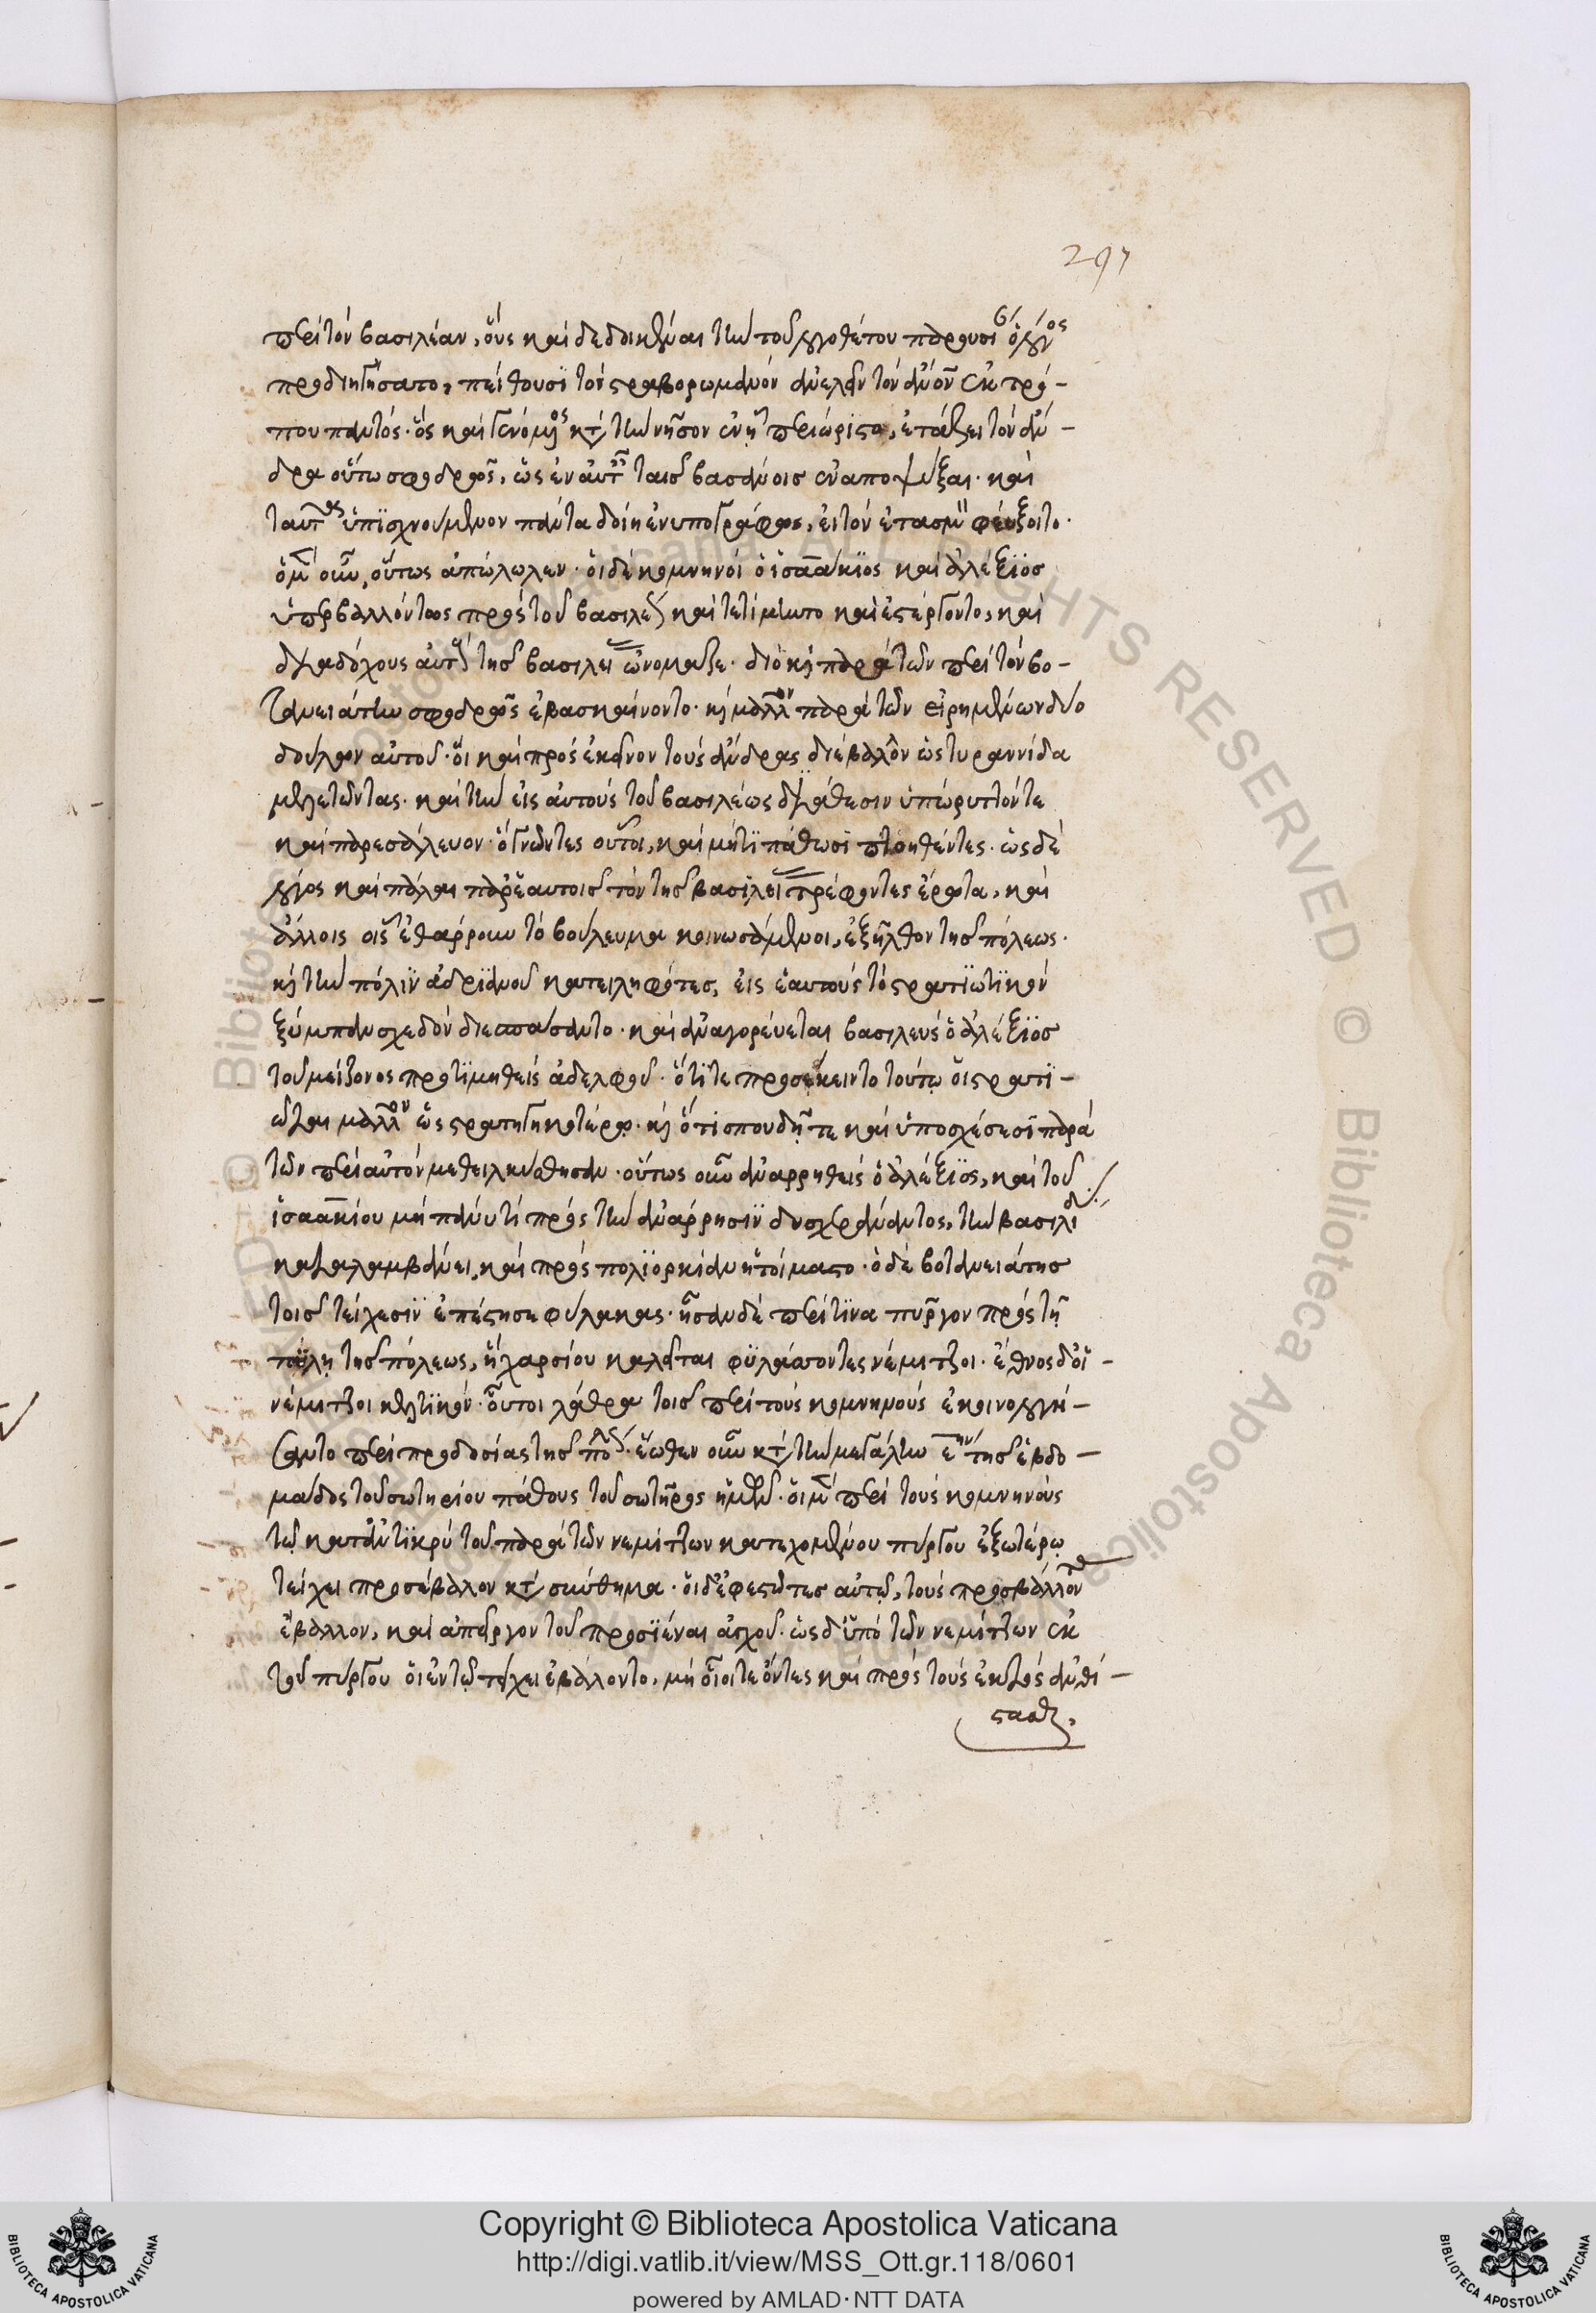 297
περὶ τὸν βασιλέαν, οὓς καὶ δεδοικέναι τὴν τοῦ λογοθέτου παρουσί ὁ λόγος
προδιηγήσατο, πείθουσι τὸν στραβορωμανὸν ἀνελεῖν τὸν ἄνον ἐκ τρό-
που παντός. ὃς καὶ γενόμενος κατὰ τὴν νῆσον ἐν ᾗ περιώριστο, ἐτάζει τὸν ἄν-
δρα οὕτω σφοδρῶς, ὡς ἐν αὐταῖς ταῖς βασάνοις ἐναποψύξαι. καὶ
ταῦτα ὑπισχνούμενον πάντα δοίη ἐνυπογράφως, εἰ τὸν ἐτασμὸν φεύξοιτο.
ὁ μὲν οὖν οὕτως ἀπώλωλεν. οἱ δὲ κομνηνοὶ ὁ ἰσαάκιος καὶ ἀλέξιος
ὑπερβαλλόντως πρὸς τοῦ βασιλέως καὶ τετίμηντο καὶ ἐστέργοντο, καὶ
διαδόχους αὐτοῦ τῆς βασιλείας ὠνόμαζε. διὸ καὶ παρὰ τῶν περὶ τὸν βο-
τανειάτην σφοδρῶς ἐβασκαίνοντο. καὶ μᾶλλον παρὰ τῶν εἰρημένων δύο
δούλων αὐτοῦ. οἳ καὶ πρὸς ἐκεῖνον τοὺς ἄνδρας διέβαλλον ὡς τυραννίδα
μελετῶντας. καὶ τὴν εἰς αὐτοὺς τοῦ βασιλέως διάθεσιν ὑπώρυττόν τε
καὶ παρεσάλευον. ὃ γνῶντες οὗτοι, καὶ μήτι πάθωσι πτοηθέντες. ὡς δὲ
λόγος καὶ πάλαι παρ' ἑαυτοῖς τὸν τῆς βασιλείας τρέφοντες ἔρωτα, καὶ
ἄλλοις οἷς ἐθάρρουν τὸ βούλευμα κοινωσάμενοι, ἐξῆλθον τῆς πόλεως.
καὶ τὴν πόλιν ἀδριανοῦ κατειληφότες, εἰς ἑαυτοὺς τὸ στρατιωτικὸν
ξύμπαν σχεδὸν διεσπάσαντο. καὶ ἀναγορεύεται βασιλεὺς ὁ ἀλέξιος
τοῦ μείζονος προτιμηθεὶς ἀδελφοῦ. ὅτι τε προσέκειντο τούτῳ οἱ στρατι-
ῶται μᾶλλον ὡς στρατηγικωτέρῳ. καὶ ὅτι σπουδῇ τε καὶ ὑποσχέσεσι παρὰ
τῶν περὶ αὐτὸν μεθειλκύσθησαν. οὕτως οὖν ἀναρρηθεὶς ὁ ἀλέξιος, καὶ τοῦ
ἰσαακίου μὴ πάνυ τι πρὸς τὴν ἀνάρρησιν δυσχεράναντος, τὴν βασιλίδα
καταλαμβάνει, καὶ πρὸς πολιορκίαν ἡτοίμαστο. ὁ δὲ βοτανειάτης
τοῖς τείχεσιν ἐπέστησε φύλακας. ἦσαν δὲ περί τινα πύργον πρὸς τῇ
πύλῃ τῆς πόλεως, ἣ χαρσίου καλεῖται φυλάττοντες νέμιτζοι. ἔθνος δ' οἱ
νέμιτζοι κελτικόν. οὗτοι λάθρα τοῖς περὶ τοὺς κομνηνοὺς ἐκοινολογή-
σαντο περὶ προδοσίας τῆς πόλεως. ἕωθεν οὖν κατὰ τὴν μεγάλην ε΄ην τῆς ἑβδο-
μάδος τοῦ σωτηρίου πάθους τοῦ σωτῆρος ἡμῶν. οἱ μὲν περὶ τοὺς κομνηνοὺς
τῷ καταντικρὺ τοῦ παρὰ τῶν νεμίτζων κατεχομένου πύργου ἐξωτέρῳ
τείχει προσέβαλλον κατὰ σύνθημα. οἱ δ' ἐφεστῶτες αὐτῷ, τοὺς προσβάλλοντας
ἔβαλλον, καὶ ἀπεῖργον τοῦ προσιέναι ἀγχοῦ. ὡς δ' ὑπὸ τῶν νεμίτζων ἐκ
τοῦ πύργου οἱ ἐν τῷ τείχει ἐβάλλοντο, μὴ οἷοί τε ὄντες καὶ πρὸς τοὺς ἐκτὸς ἀνθί-
στασθαι,
Copyright © Biblioteca Apostolica Vaticana
http://digi.vatlib.it/view/MSS_Ott.gr.118/0601
powered by AMLAD·NTT DATA